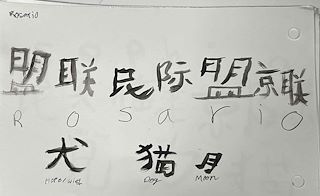 Rosario
盟联民际盟京联
R o s a r i o
犬 猫 月
Dog Moon